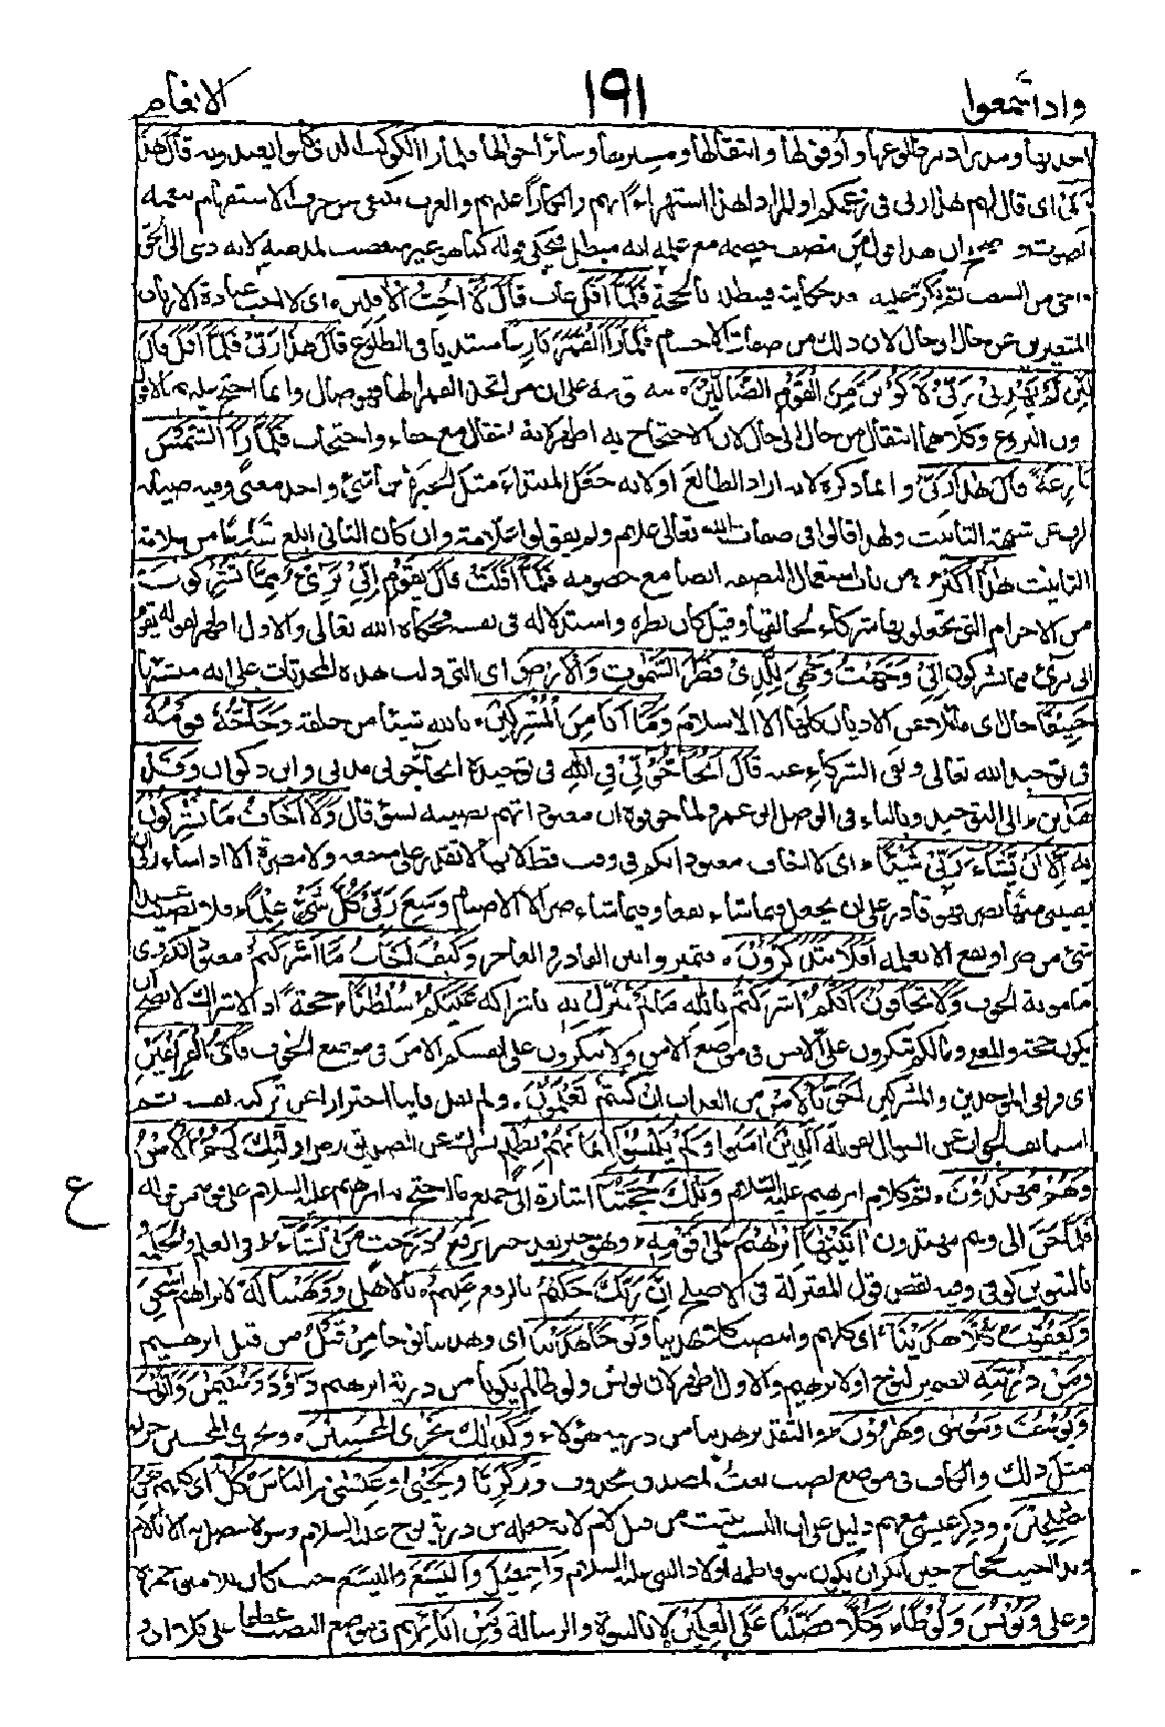 واذا سمعوا ١٩١ الانعام
احدثها ومدبرا دبر طلوعها وأفولها وانتقالها ومسيرها وسائر أحوالها فلما رأى الكوكب الذى كانوا يعبدونه قَالَ هٰذَا
رَبِّى اى قال لهم هذا ربى فى زعمكم او المراد اهذا استهزاءً بهم وانكارًا عليهم والعرب تكتفى عن حرف الاستفهام بنغمة
الصوت و صحيح ان هذا قول من ينصف خصمه مع علمه انه مبطل فيحكى قوله كما هو غير متعصب لمذهبه لانه ادعى الى الحق
وانجى من الشغب ثم يكر عليه بعد حكايته فيبطله بالحجة فَلَمَّآ اَفَلَ غاب قَالَ لَآ اُحِبُّ الْاٰفِلِيْنَ اى لا احب عبادة الارباب
المتغيرين عن حال الى حال لان ذلك من صفات الاجسام فَلَمَّا رَاَ الْقَمَرَ بَازِغًا مبتديا فى الطلوع قَالَ هٰذَا رَبِّىْ فَلَمَّآ اَفَلَ قَالَ
لَئِنْ لَّمْ يَهْدِنِىْ رَبِّىْ لَاَكُوْنَنَّ مِنَ الْقَوْمِ الضَّآلِّيْنَ نبه قومه على ان من اتخذ القمر الها فهو ضال وانما احتج عليهم بالافول
دون البزوغ وكلاهما انتقال من حال الى حال لان الاحتجاج به اظهر لانه انتقال مع خفاء واحتجاب فَلَمَّا رَاَ الشَّمْسَ
بَازِغَةً قَالَ هٰذَا رَبِّىْ وانما ذكره لانه اراد الطالع او لانه جعل المبتدأ مثل الخبر لانهما شئ واحد معنًى وفيه صيانة
الرب عن شبهة التانيث ولهذا قالوا فى صفات الله تعالى علام ولم يقولوا علامة وان كان الثانى ابلغ تفاديا من علامة
التانيث هٰذَآ اَكْبَرُ من باب استعمال النصفة ايضا مع خصومه فَلَمَّآ اَفَلَتْ قَالَ يٰقَوْمِ اِنِّىْ بَرِىْٓءٌ مِّمَّا تُشْرِكُوْنَ
من الاجرام التى تجعلونها شركاء لخالقها وقيل كان نظره واستدلاله فى نفسه فحكاه الله تعالى والاول اظهر لقوله يقوم
انى برئ مما تشركون اِنِّىْ وَجَّهْتُ وَجْهِىَ لِلَّذِىْ فَطَرَ السَّمٰوٰتِ وَالْاَرْضَ اى للذى دلت هذه المحدثات على انه منشئها
حَنِيْفًا حال اى مائلا عن الاديان كلها الا الاسلام وَّمَآ اَنَا مِنَ الْمُشْرِكِيْنَ بالله شيئا من خلقه وَحَآجَّهٗ قَوْمُهٗ
فى توحيد الله تعالى ونفى الشركاء عنه قَالَ اَتُحَآجُّوْٓنِّىْ فِى اللّٰهِ فى توحيده اتحاجونى مدنى وابن ذكوان وَقَدْ
هَدٰىنِ الى التوحيد وبالياء فى الوصل ابو عمرو ولما خوفوه ان معبوداتهم تصيبه بسوء قال وَلَآ اَخَافُ مَا تُشْرِكُوْنَ
بِهٖٓ اِلَّآ اَنْ يَّشَآءَ رَبِّىْ شَيْئًا اى لا اخاف معبوداتكم فى وقت قط لانها لا تقدر على منفعة ولا مضرة الا اذا شاء ربى ان
يصيبنى منها بضر فهو قادر على ان يجعل فيما شاء نفعا وفيما شاء ضرا لا الاصنام وَسِعَ رَبِّىْ كُلَّ شَىْءٍ عِلْمًا فلا يصيب عبدا
شئ من ضر او نفع الا بعلمه اَفَلَا تَتَذَكَّرُوْنَ فتميزوا بين القادر والعاجز وَكَيْفَ اَخَافُ مَآ اَشْرَكْتُمْ معبوداتكم وهى
مامونة الخوف وَلَا تَخَافُوْنَ اَنَّكُمْ اَشْرَكْتُمْ بِاللّٰهِ مَا لَمْ يُنَزِّلْ بِهٖ باشراكه عَلَيْكُمْ سُلْطٰنًا حجة اذ الاشراك لا يصح ان
يكون حجة والمعنى ومالكم تنكرون على الامن فى موضع الامن ولا تنكرون على انفسكم الامن فى موضع الخوف فَاَىُّ الْفَرِيْقَيْنِ
اى فريقى الموحدين والمشركين اَحَقُّ بِالْاَمْنِ من العذاب اِنْ كُنْتُمْ تَعْلَمُوْنَ ولم يقل فاينا احترازا عن تزكية نفسه ثم
استانف الجواب عن السؤال بقوله اَلَّذِيْنَ اٰمَنُوْا وَلَمْ يَلْبِسُوْٓا اِيْمَانَهُمْ بِظُلْمٍ بشرك عن الصديق رض اُولٰٓئِكَ لَهُمُ الْاَمْنُ
وَهُمْ مُّهْتَدُوْنَ تم كلام ابرهيم عليه السلام وَتِلْكَ حُجَّتُنَآ اشارة الى جميع ما احتج به ابرهيم عليه السلام على قومه من قوله
فلما جن الى وهم مهتدون اٰتَيْنٰهَآ اِبْرٰهِيْمَ عَلٰى قَوْمِهٖ وهو خبر بعد خبر نَرْفَعُ دَرَجٰتٍ مَّنْ نَّشَآءُ فى العلم والحكمة و
بالتنوين كوفى وفيه نقض قول المعتزلة فى الاصلح اِنَّ رَبَّكَ حَكِيْمٌ بالرفع عَلِيْمٌ بالاهل وَوَهَبْنَا لَهٗٓ لابراهيم اِسْحٰقَ
وَيَعْقُوْبَ كُلًّا هَدَيْنَا اى كلهم وانتصب كلا بهدينا وَنُوْحًا هَدَيْنَا اى وهدينا نوحا مِنْ قَبْلُ من قبل ابرهيم
وَمِنْ ذُرِّيَّتِهٖ الضمير لنوح او لابرهيم والاول اظهر لان يونس ولوطا لم يكونا من ذرية ابرهيم دَاوٗدَ وَسُلَيْمٰنَ وَاَيُّوْبَ
وَيُوْسُفَ وَمُوْسٰى وَهٰرُوْنَ والتقدير وهدينا من ذريته هؤلاء وَكَذٰلِكَ نَجْزِى الْمُحْسِنِيْنَ ونجزى المحسنين جزاء
مثل ذلك والكاف فى موضع نصب نعت لمصدر محذوف وَزَكَرِيَّا وَيَحْيٰى وَعِيْسٰى وَاِلْيَاسَ كُلٌّ اى كلهم مِّنَ
الصّٰلِحِيْنَ وذكر عيسى معهم دليل على ان النسب يثبت من قبل الام لانه جعله من ذرية نوح عليه السلام وهو لا يتصل به الا بالام
وبذا اجيب الحجاج حين انكر ان يكون بنو فاطمة اولاد النبى عليه السلام وَاِسْمٰعِيْلَ وَالْيَسَعَ واليسع حيث كان بلامين حمزة
وعلى وَيُوْنُسَ وَلُوْطًا وَكُلًّا فَضَّلْنَا عَلَى الْعٰلَمِيْنَ بالنبوة والرسالة وَمِنْ اٰبَآئِهِمْ فى موضع النصب عطفا على كلا اى و
ع